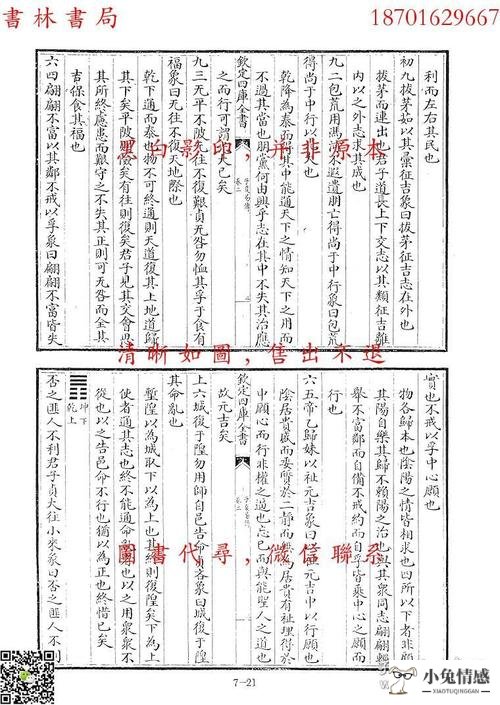 書林書局
18701629667
利而左右其民也
初九拔茅茹以其彙征吉象曰拔茅征吉志在外也
拔茅而連出也君子道長上下交志以其類征吉離
内以之外求其志求其成也
九二包荒用馮河不遐遺朋亡得尚于中行象曰包荒
得尚于中行以光大也
乾降為泰而得其中能通天下之情知天下之用而
不過其當也朋黨何由興乎志在其中不失其治應
欽定四庫全書
子夏易傳
卷二
之而行可謂光大已矣
九三无平不陂无往不復艱貞无咎勿恤其孚于食有
福象曰无往不復天地際也
乾下通而泰也物不可終通則天道復其上地道歸
其下矣平陂險矣有往則復矣君子見其交會思
其所終慮患而艱守之不失其正則可无咎而全其
吉保食其福也
六四翩翩不富以其鄰不戒以孚象曰翩翩不富皆失
黑白影印，并非原本
清晰如圖，售出不退
實也不戒以孚中心願也
物各歸本也陰陽之情皆相求也四所以下者非
其陽自樂其歸不賴陽之治也與其衆同志翩翩輕
舉不富鄰而自備不戒約而自孚皆乘中心之願而
行也
六五帝乙歸妹以祉元吉象曰以祉元吉中以行願也
陰居貴盛而委質於二靜而無為居貴有祉理得於
中願心而行非權之道也忘已而與能聖人之道也
欽定四庫全書
故元吉矣
上六城復于隍勿用師自邑告命貞吝象曰城復于隍
其命亂也
塹隍以為城取下以為上也其終則復隍矣下奉上
使者通其志也終不能通命
從也以之告邑命不行也猶以為其正也終惜已矣
坤下
乾上
否之匪人不利君子貞大往小來象曰否之匪人不利
圖書代尋，微信聯系
7-21
小兔情感
XIAOTUQINGGAN